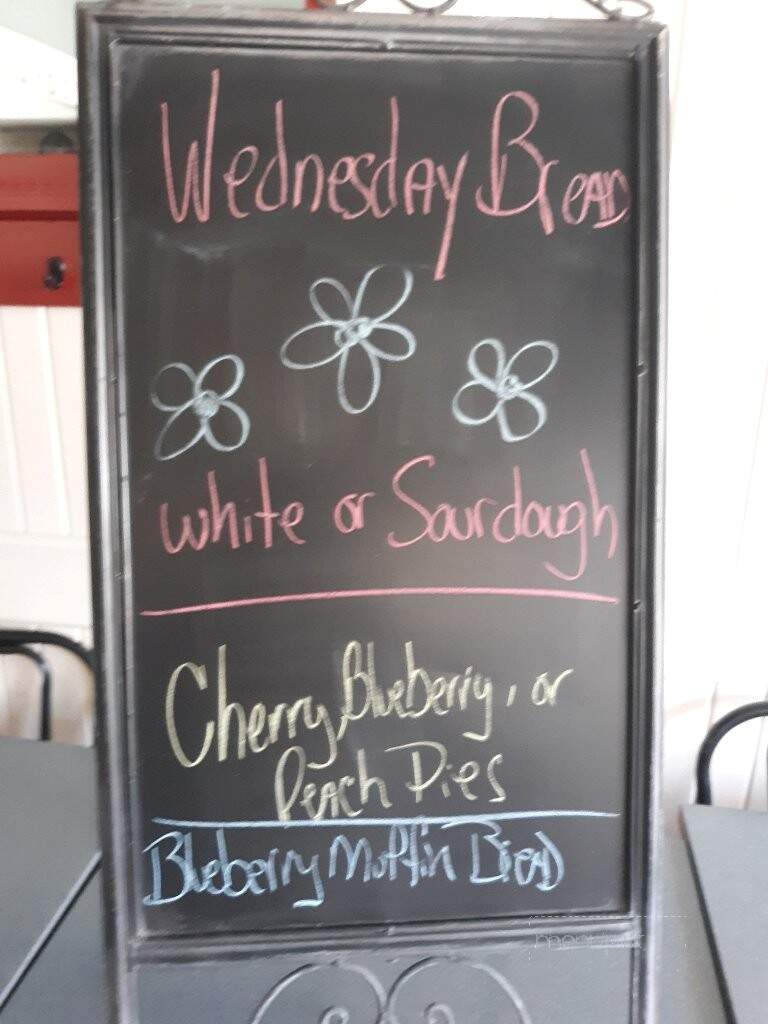 Wednesday Bread
white or Sourdough
Cherry, Blueberry, or
Peach Pies
Blueberry Muffin Bread